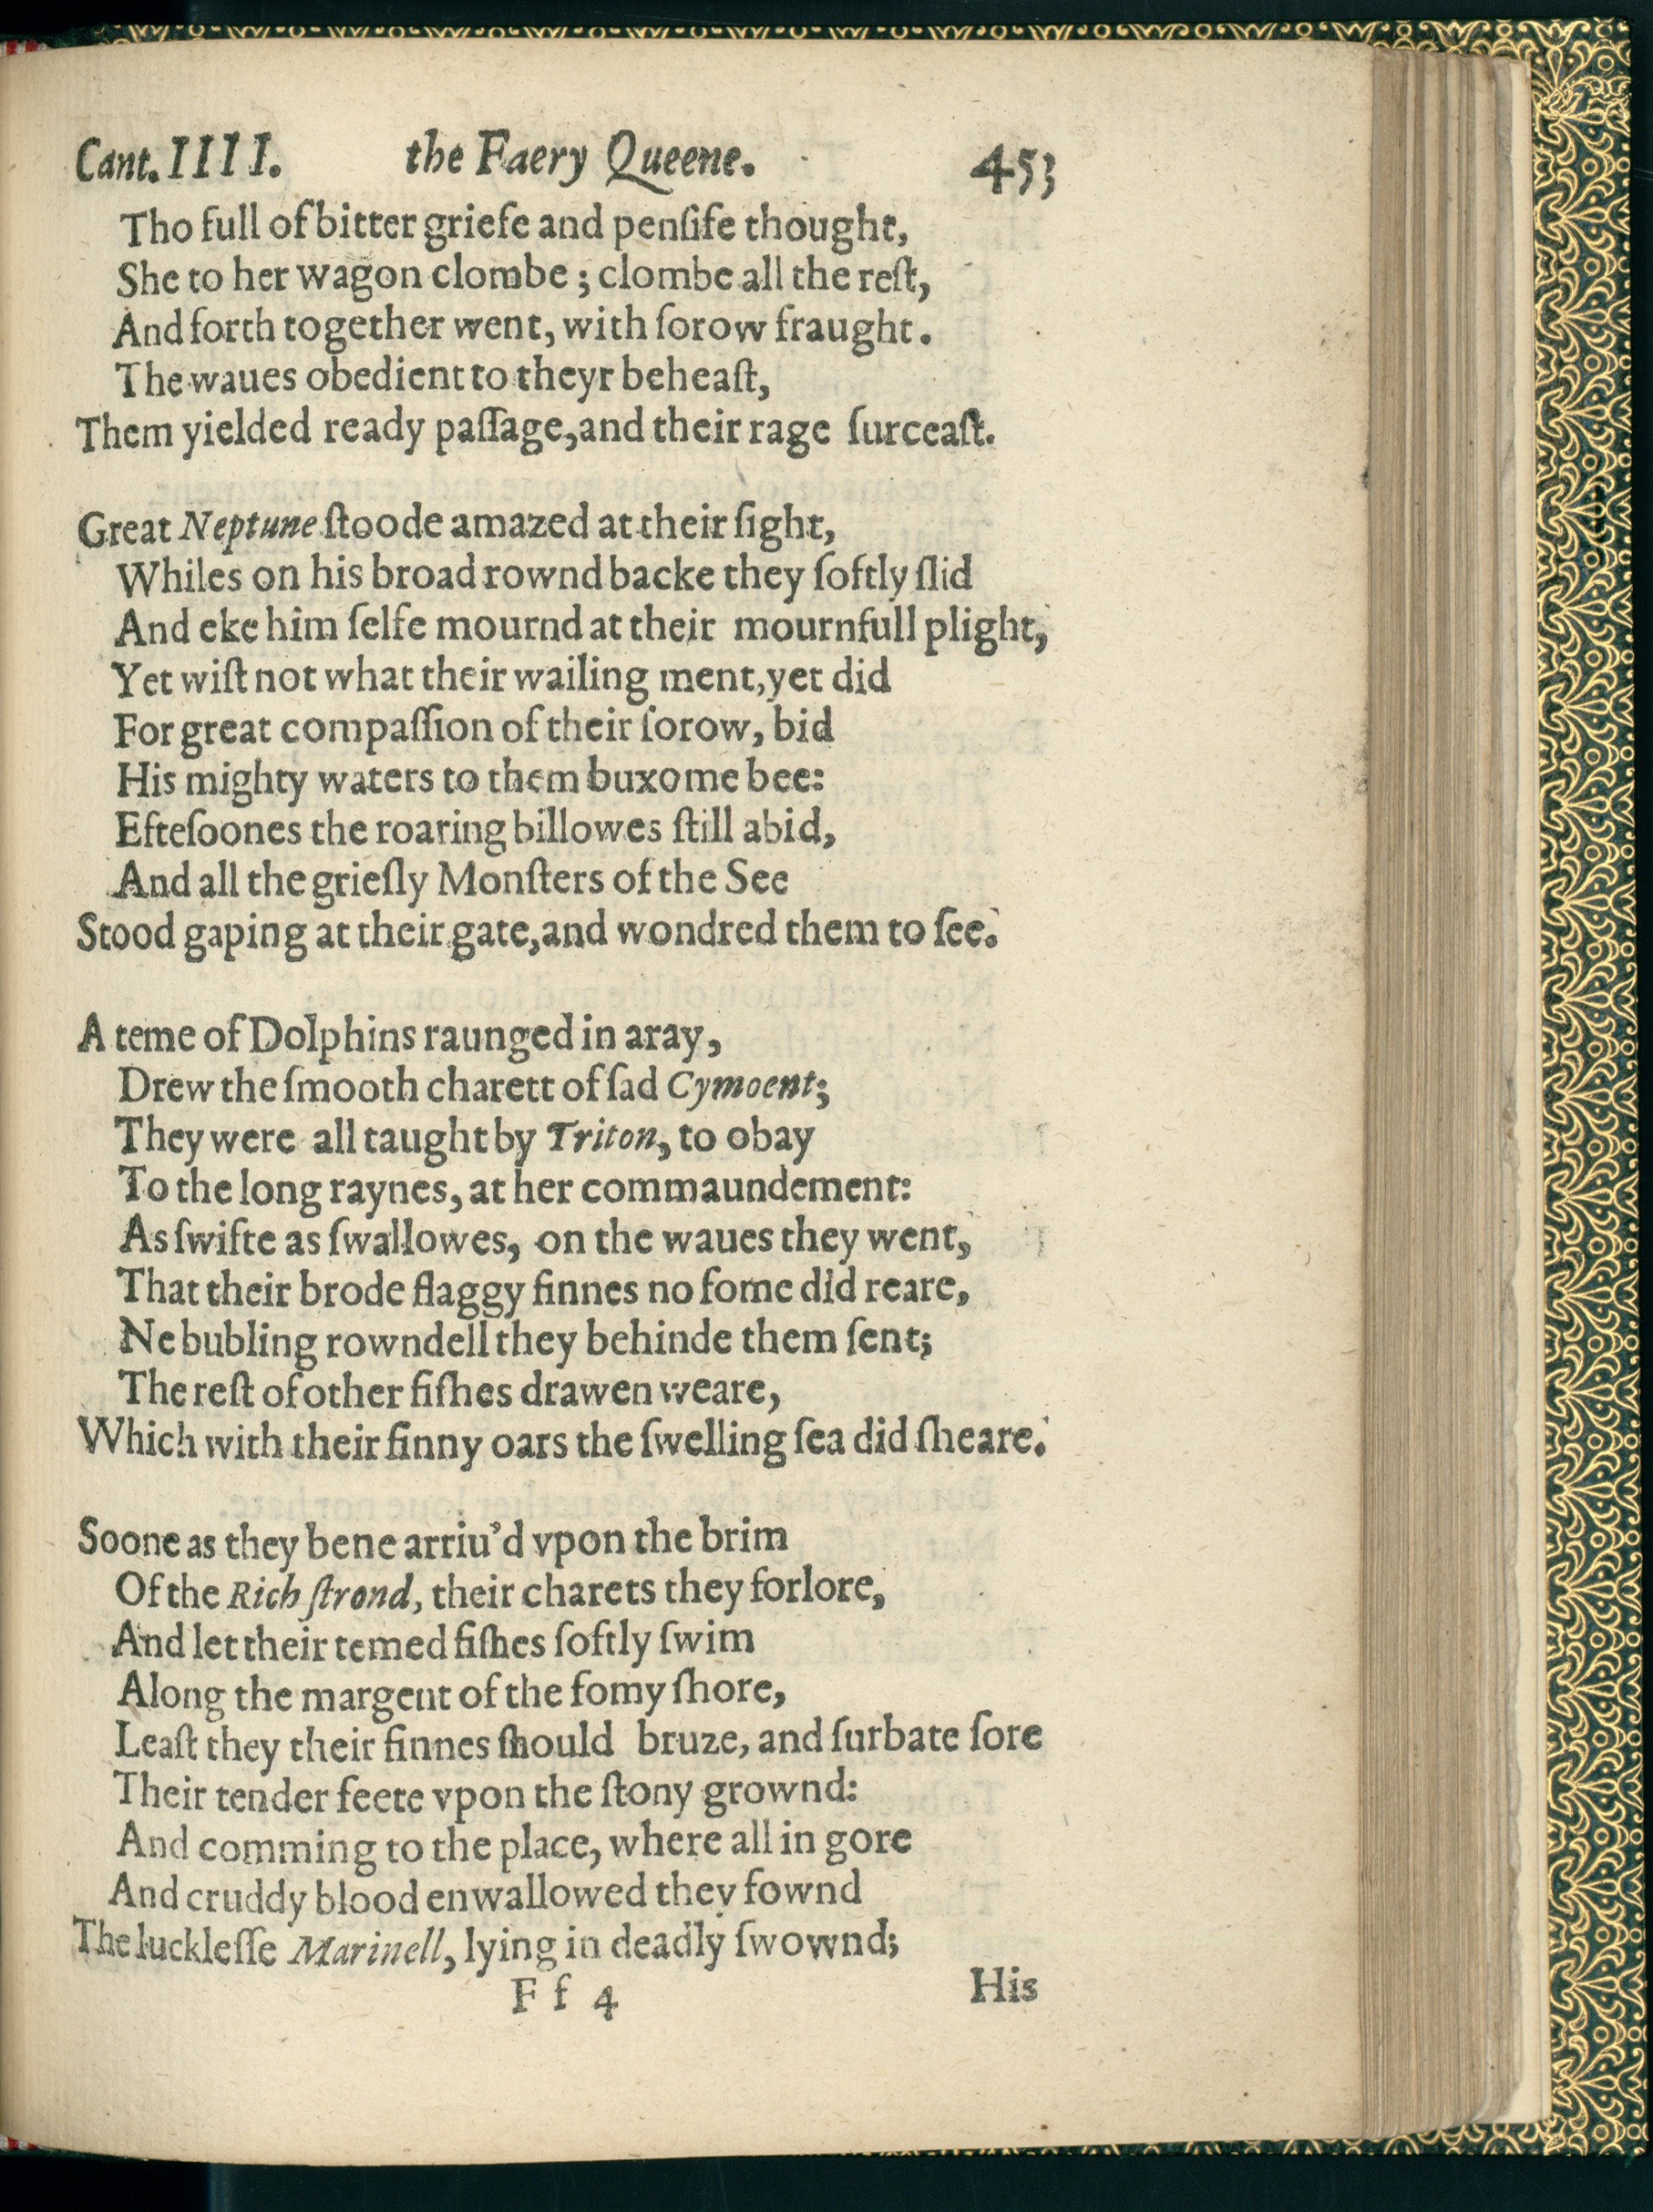 Cant. IIII. the Faery Queene. 453
Tho full of bitter griefe and penſife thought,
She to her wagon clombe; clombe all the reſt,
And forth together went, with ſorow fraught.
The waues obedient to theyr beheaſt,
Them yielded ready paſſage, and their rage ſurceaſt.
Great Neptune ſtoode amazed at their ſight,
Whiles on his broad rownd backe they ſoftly ſlid
And eke him ſelfe mournd at their mournfull plight,
Yet wiſt not what their wailing ment, yet did
For great compaſſion of their ſorow, bid
His mighty waters to them buxome bee:
Efteſoones the roaring billowes ſtill abid,
And all the grieſly Monſters of the See
Stood gaping at their gate, and wondred them to ſee.
A teme of Dolphins raunged in aray,
Drew the ſmooth charett of ſad Cymoent;
They were all taught by Triton, to obay
To the long raynes, at her commaundement:
As ſwifte as ſwallowes, on the waues they went,
That their brode flaggy finnes no fome did reare,
Ne bubling rowndell they behinde them ſent;
The reſt of other fiſhes drawen weare,
Which with their finny oars the ſwelling ſea did ſheare.
Soone as they bene arriu'd vpon the brim
Of the Rich ſtrond, their charets they forlore,
And let their temed fiſhes ſoftly ſwim
Along the margent of the fomy ſhore,
Leaſt they their finnes ſhould bruze, and ſurbate ſore
Their tender feete vpon the ſtony grownd:
And comming to the place, where all in gore
And cruddy blood enwallowed they fownd
The luckleſſe Marinell, lying in deadly ſwownd;
F f 4 His